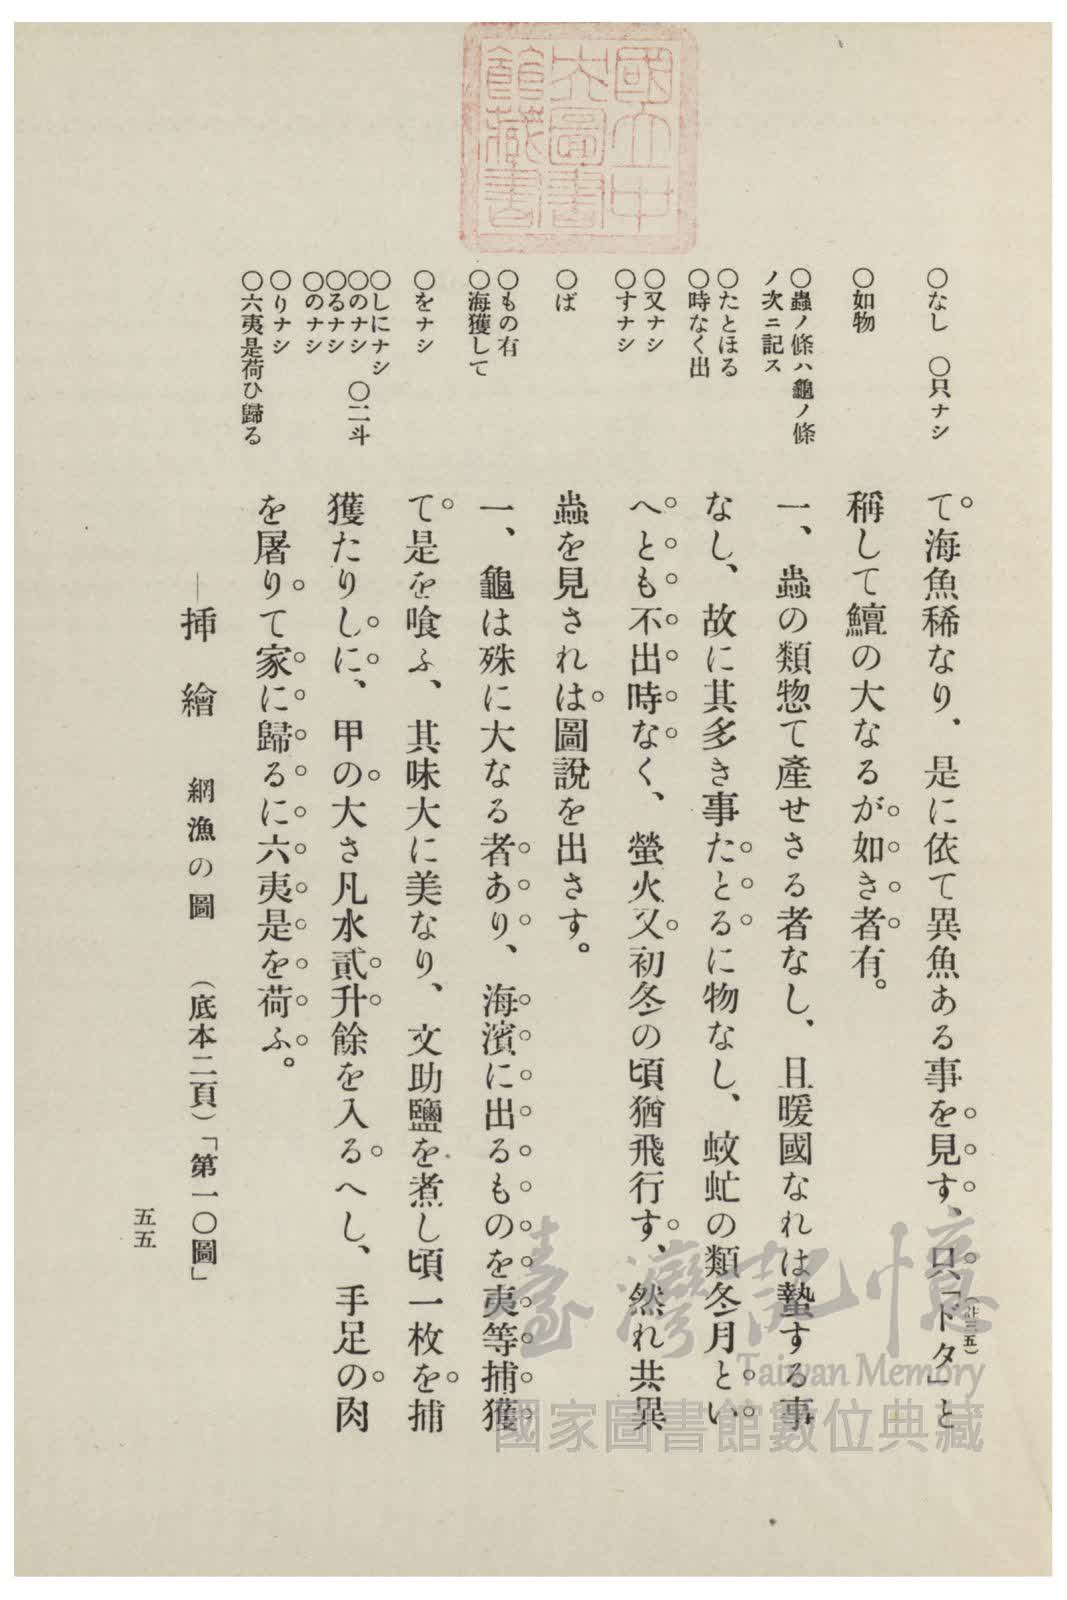 國立中
央圖書
館藏書
○なし　○只ナシ
○如物
○蟲ノ條ハ龜ノ條
ノ次ニ記ス
○たとほる
○時なく出
○又ナシ
○すナシ
○ば
○もの有
○海獲して
○をナシ
○しにナシ
○のナシ　○二斗
○るナシ
○のナシ
○りナシ
○六夷是荷ひ歸る
て海魚稀なり、是に依て異魚ある事を見す、只「ドタ」と
(註三五)
稱して鱣の大なるが如き者有。
一、蟲の類惣て產せさる者なし、且暖國なれは蟄する事
なし、故に其多き事たとるに物なし、蚊虻の類冬月とい
へとも不出時なく、螢火又初冬の頃猶飛行す、然れ共異
蟲を見されは圖說を出さす。
一、龜は殊に大なる者あり、海濱に出るものを夷等捕獲
て是を喰ふ、其味大に美なり、文助鹽を煮し頃一枚を捕
獲たりしに、甲の大さ凡水貳升餘を入るへし、手足の肉
を屠りて家に歸るに六夷是を荷ふ。
―揷繪　網漁の圖　(底本二頁)「第一〇圖」
五五
臺灣記憶
Taiwan Memory
國家圖書館數位典藏